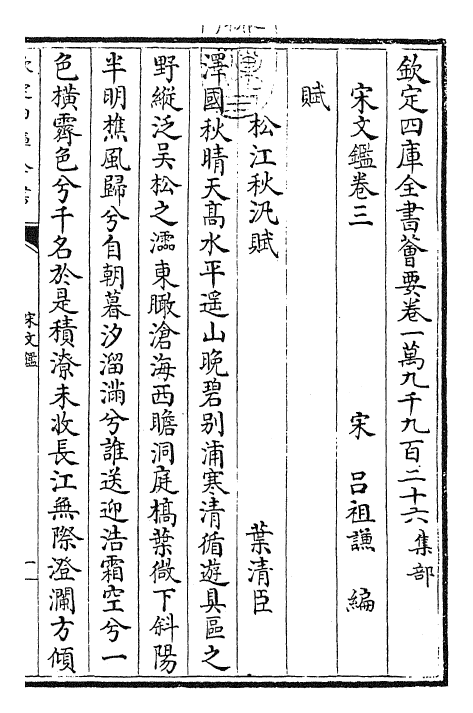 欽定四庫全書薈要卷一萬九千九百二十六集部
宋文鑑卷三 宋 吕祖謙 編
賦
松江秋汎賦 葉清臣
澤國秋晴天髙水平遥山晚碧别浦寒清循遊具區之
野縱泛吴松之濡東瞰滄海西瞻洞庭槁葉微下斜陽
半明樵風歸兮自朝暮汐溜滿兮誰送迎浩霜空兮一
色橫霽色兮千名於是積潦未收長江無際澄瀾方傾
宋文鑑
一